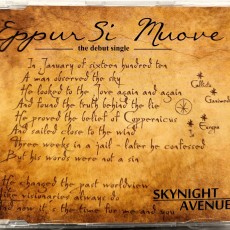 Eppur Si Muove
the debut single
In January of sixteen hundred ten
A man observed the sky
He looked to the Jove again and again
And found the truth behind the lie
He proved the belief of Coppernicus
And sailed close to the wind
Three weeks in a jail - later he confessed
But his words were not a sin
Callisto
Ganimede
Io
Europa
He changed the past worldview
The visionaries always do
And now it's the time for me and you
SKYNIGHT
AVENUE